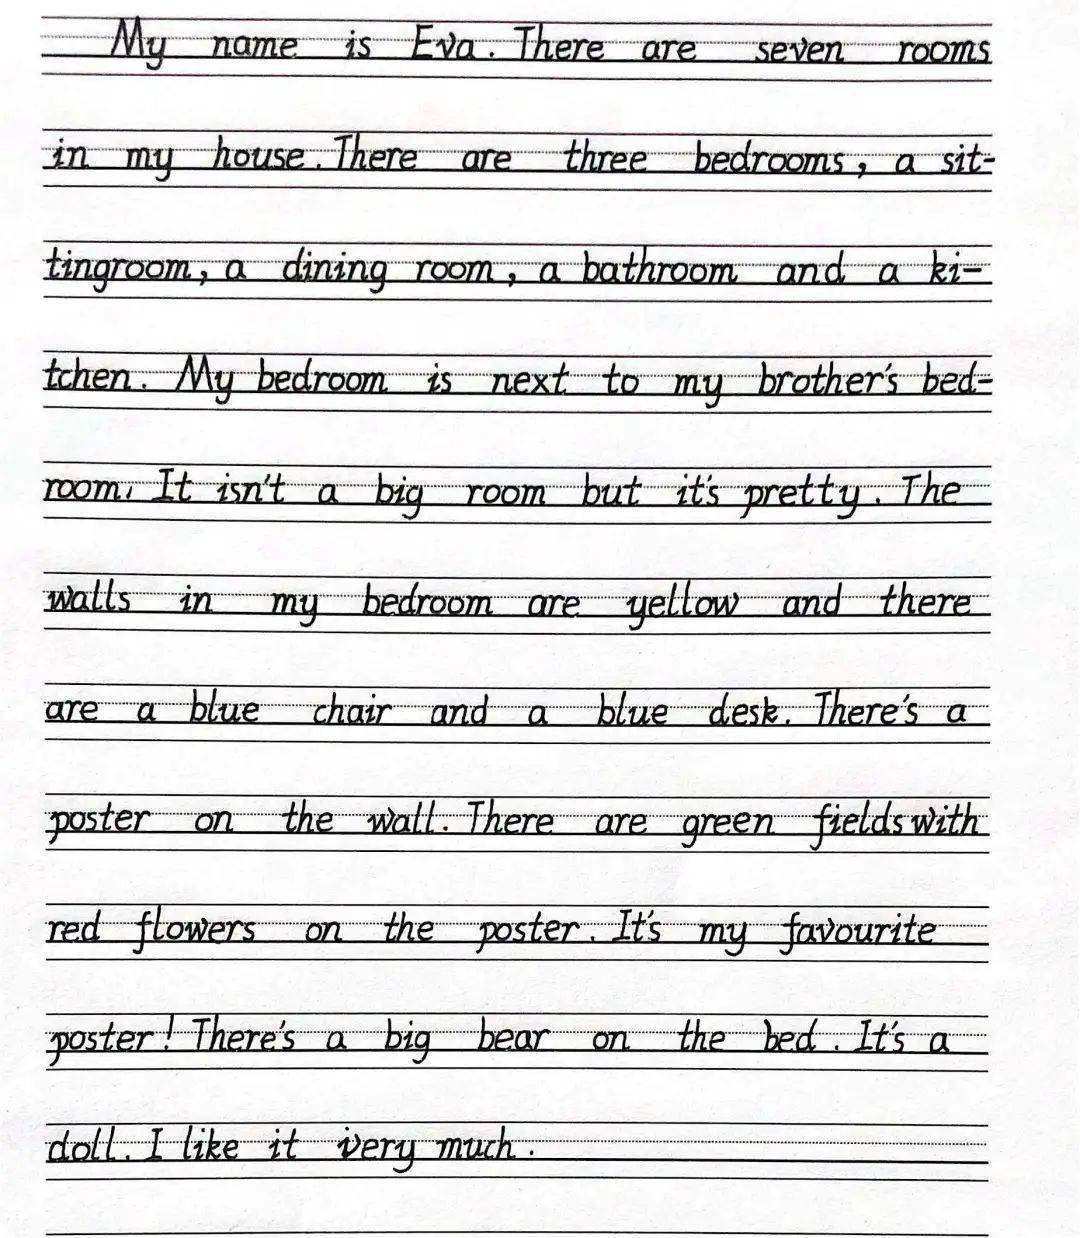 My name is Eva. There are seven rooms
in my house. There are three bedrooms, a sit-
tingroom, a dining room, a bathroom and a ki-
tchen. My bedroom is next to my brother's bed-
room. It isn't a big room but it's pretty. The
walls in my bedroom are yellow and there
are a blue chair and a blue desk. There's a
poster on the wall. There are green fields with
red flowers on the poster. It's my favourite
poster! There's a big bear on the bed. It's a
doll. I like it very much.